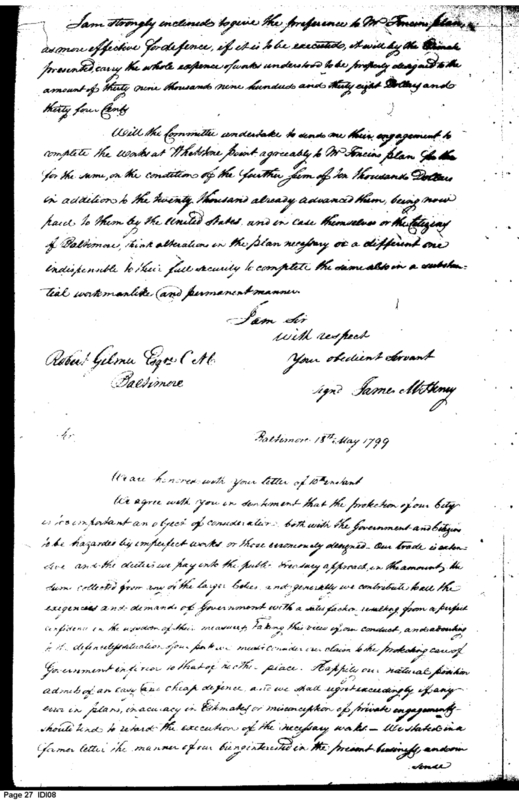 I am strongly inclined to give the preference to Mr Foncins plan
as more effective for defence, if it is to be executed, it will by the
presented, carry the whole expence of works understood to be properly designed to the
amount of thirty nine thousands nine hundred and thirty eight Dollars and
thirty four Cents
Will the Committee undertake to send me their engagement to
complete the works at Whetstone point agreeably to Mr Foncins plan
for the same, on the condition of the further sum of ten thousands Dollars
in addition to the twenty thousand already advanced them, being now
paid to them by the United States, and in case themselves or the Citizens
of Baltimore, think alteration in the plan necessary or a different one
indispensible to their full security to complete the same also in a substan-
tial workmanlike and permanent manner.
I am Sir
with respect
Robert Gilmor Esqre C M. Your obedient servant
Baltimore
signd James McHenry
Sir Baltimore 18th May 1799
We are honored with your letter of 10th instant
We agree with you in sentiment that the protection of our City
is too important an object of consideration both with the Government and Citizens
to be hazarded by imperfect works or those erroniously designed. Our trade is exten
sive and the duties we pay into the public Treasury approach in the amount, the
sum collected from any of the larger and generally we contribute to all the
exigencies and demands of Government with a satisfaction resulting from a perfect
confidence in the wisdom of their measures, Taking this view of our conduct, and
to the defenceless situation of our port we must consider our claim to the protecting care of
Government inferior to that of no other place. Happily our natural position
admits of an easy and cheap defence and we shall regret exceedingly if any
error in plans, inacuracy in Estimates or misconception of private engagements
should tend to retard the execution of the necessary works — We stated in a
former letter the manner of our being interested in the present business and our
sense
Page 27 IDI08